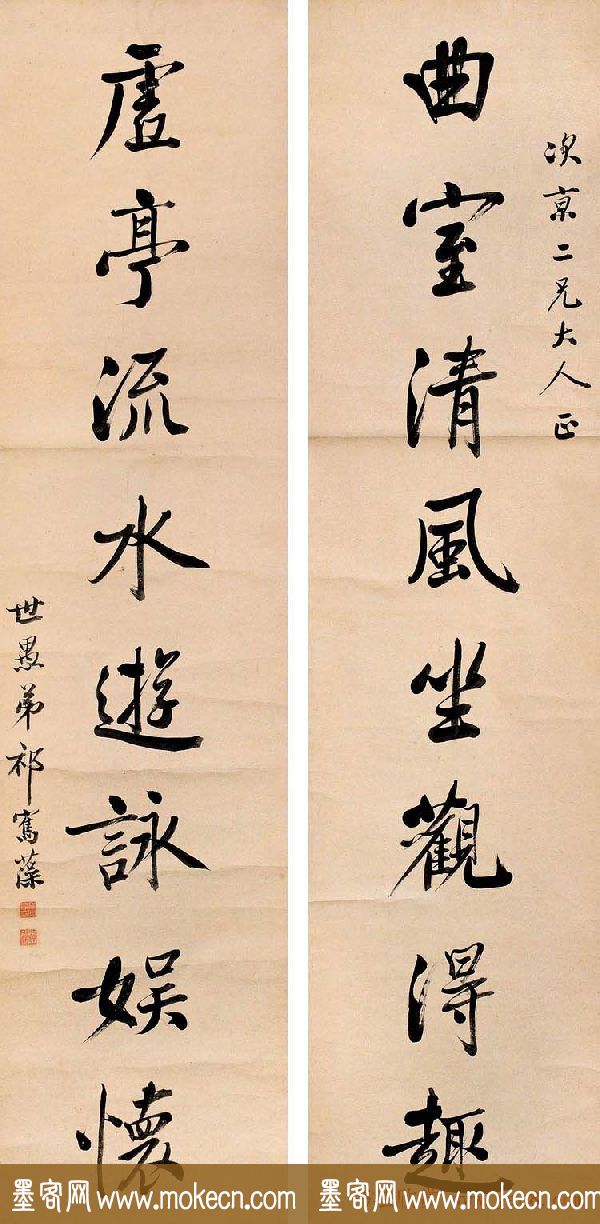 次京二兄大人正
曲室清風坐觀得趣
虛亭流水遊詠娛懷
世愚弟祁寯藻
墨客网www.mokecn.com 墨客网www.mokecn.com